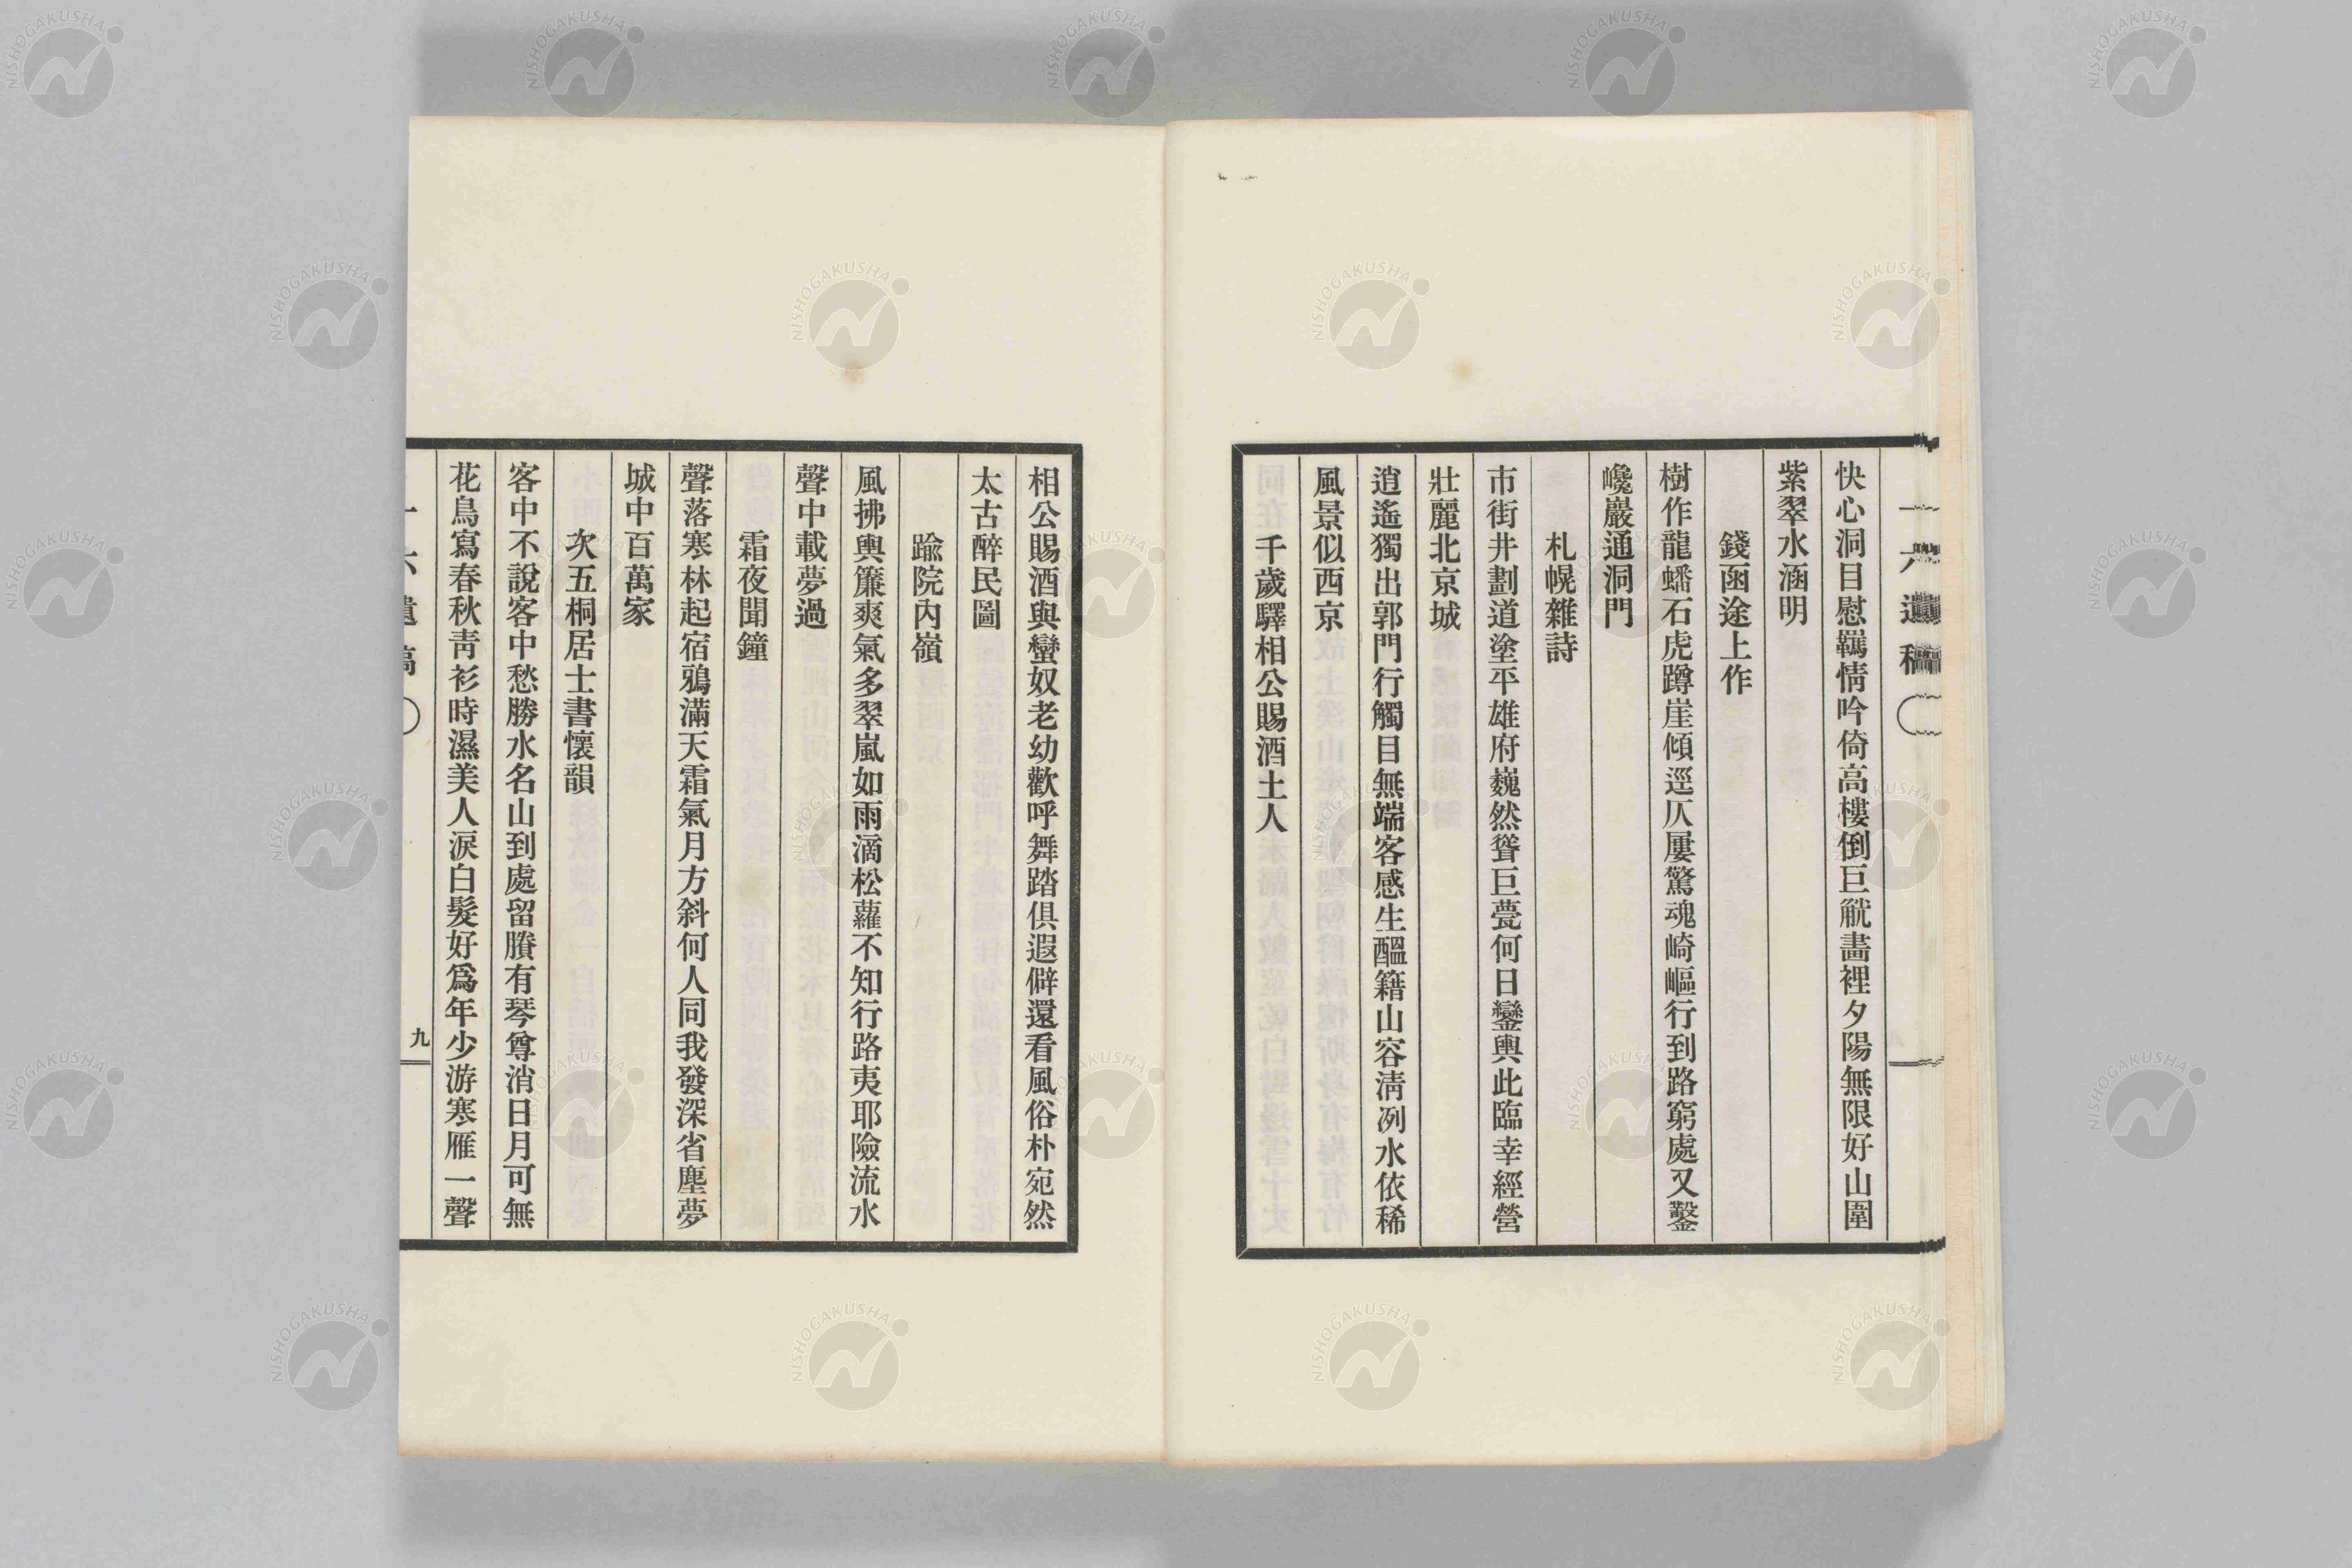 一六遺稿
快心洞目慰羈情吟倚高樓倒巨觥畵裡夕陽無限好山圍
紫翠水涵明
錢函途上作
樹作龍蟠石虎蹲崖傾逕仄屢驚魂崎嶇行到路窮處又鑿
巉巖通洞門
札幌雜詩
市街井劃道塗平雄府巍然聳巨甍何日鑾輿此臨幸經營
壯麗北京城
逍遙獨出郭門行觸目無端客感生醞籍山容淸冽水依稀
風景似西京
同在千歲驛相公賜酒土人
相公賜酒與蠻奴老幼歡呼舞踏俱遐僻還看風俗朴宛然
太古醉民圖
踰院內嶺
風拂輿簾爽氣多翠嵐如雨滴松蘿不知行路夷耶險流水
聲中載夢過
霜夜聞鐘
聲落寒林起宿鴉滿天霜氣月方斜何人同我發深省塵夢
城中百萬家
次五桐居士書懷韻
客中不說客中愁勝水名山到處留賸有琴尊消日月可無
花鳥寫春秋靑衫時濕美人淚白髮好爲年少游寒雁一聲
一六遺稿
九
NISHOGAKUSHA